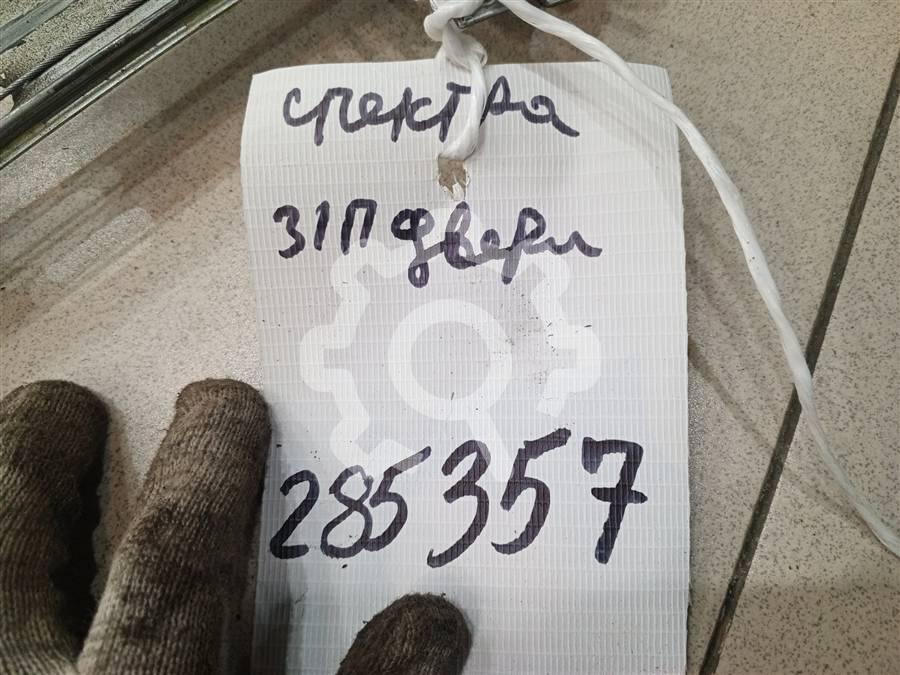 спектра
З1П двери
285357